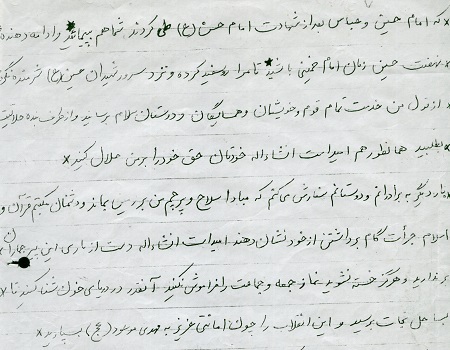 * که امام حسین و عباس بعد از شهادت امام حسن (ع) طی کردند شما هم بپیمائید و ادامه دهنده
* نهضت حسین زمان امام خمینی باشید تا مرا روسفید کرده و نزد سرور شهیدان حسین (ع) شرمنده نگر
* از قول من خدمت تمام قوم و خویشان و همسایگان و دوستان سلام برسانید و از طرف بنده حلالیت
* بطلبید همانطور هم امید است انشاءاله خودتان حق خود را بر من حلال کنید *
* بار دیگر به برادرانم و دوستانم سفارش میکنم که مبادا سلاح و پرچم من بر زمین بماند و دشمنان مکتبم قرآن و
اسلام جرأت گام برداشتن از خود نشان دهند امید است انشاءاله دست از یاری این پیر جماران
بر ندارید و هرگز خسته نشوید نماز جمعه و جماعت را فراموش نکنید آنقدر در دریای خون شنا کنید تا *
بساحل نجات برسید و این انقلاب را چون امانتی عزیز به مهدی موعود (عج) بسپارید *